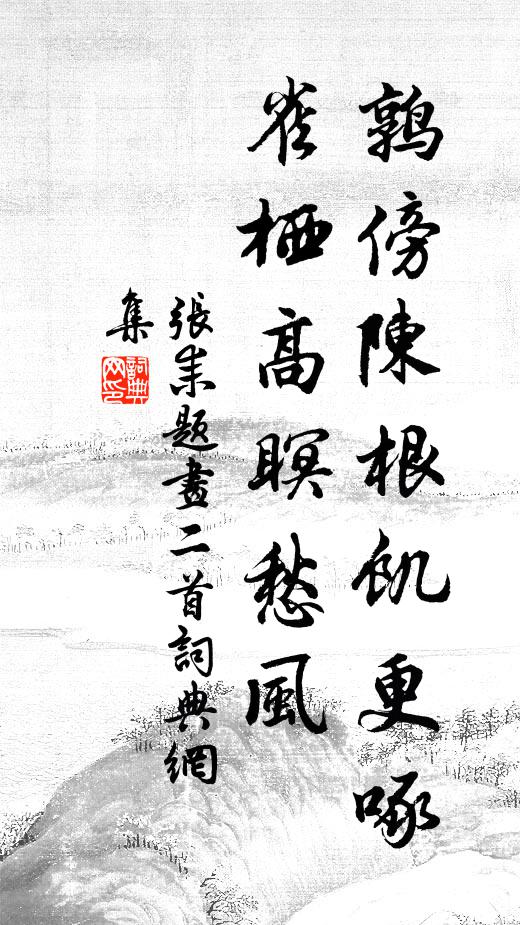 鶉傍陳根飢更啄
雀栖高暝愁風
張耒題畫二首詞典網
集
詞典网印